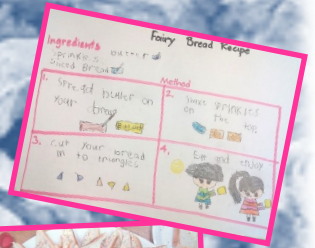 Fairy Bread Recipe
Ingredients
Sprinkles butter
Sliced Bread
Method
1.
Spread butter on
your bread
2.
sprinkles
on the top
3.
Cut your bread
in to triangles
4.
Eat and enjoy